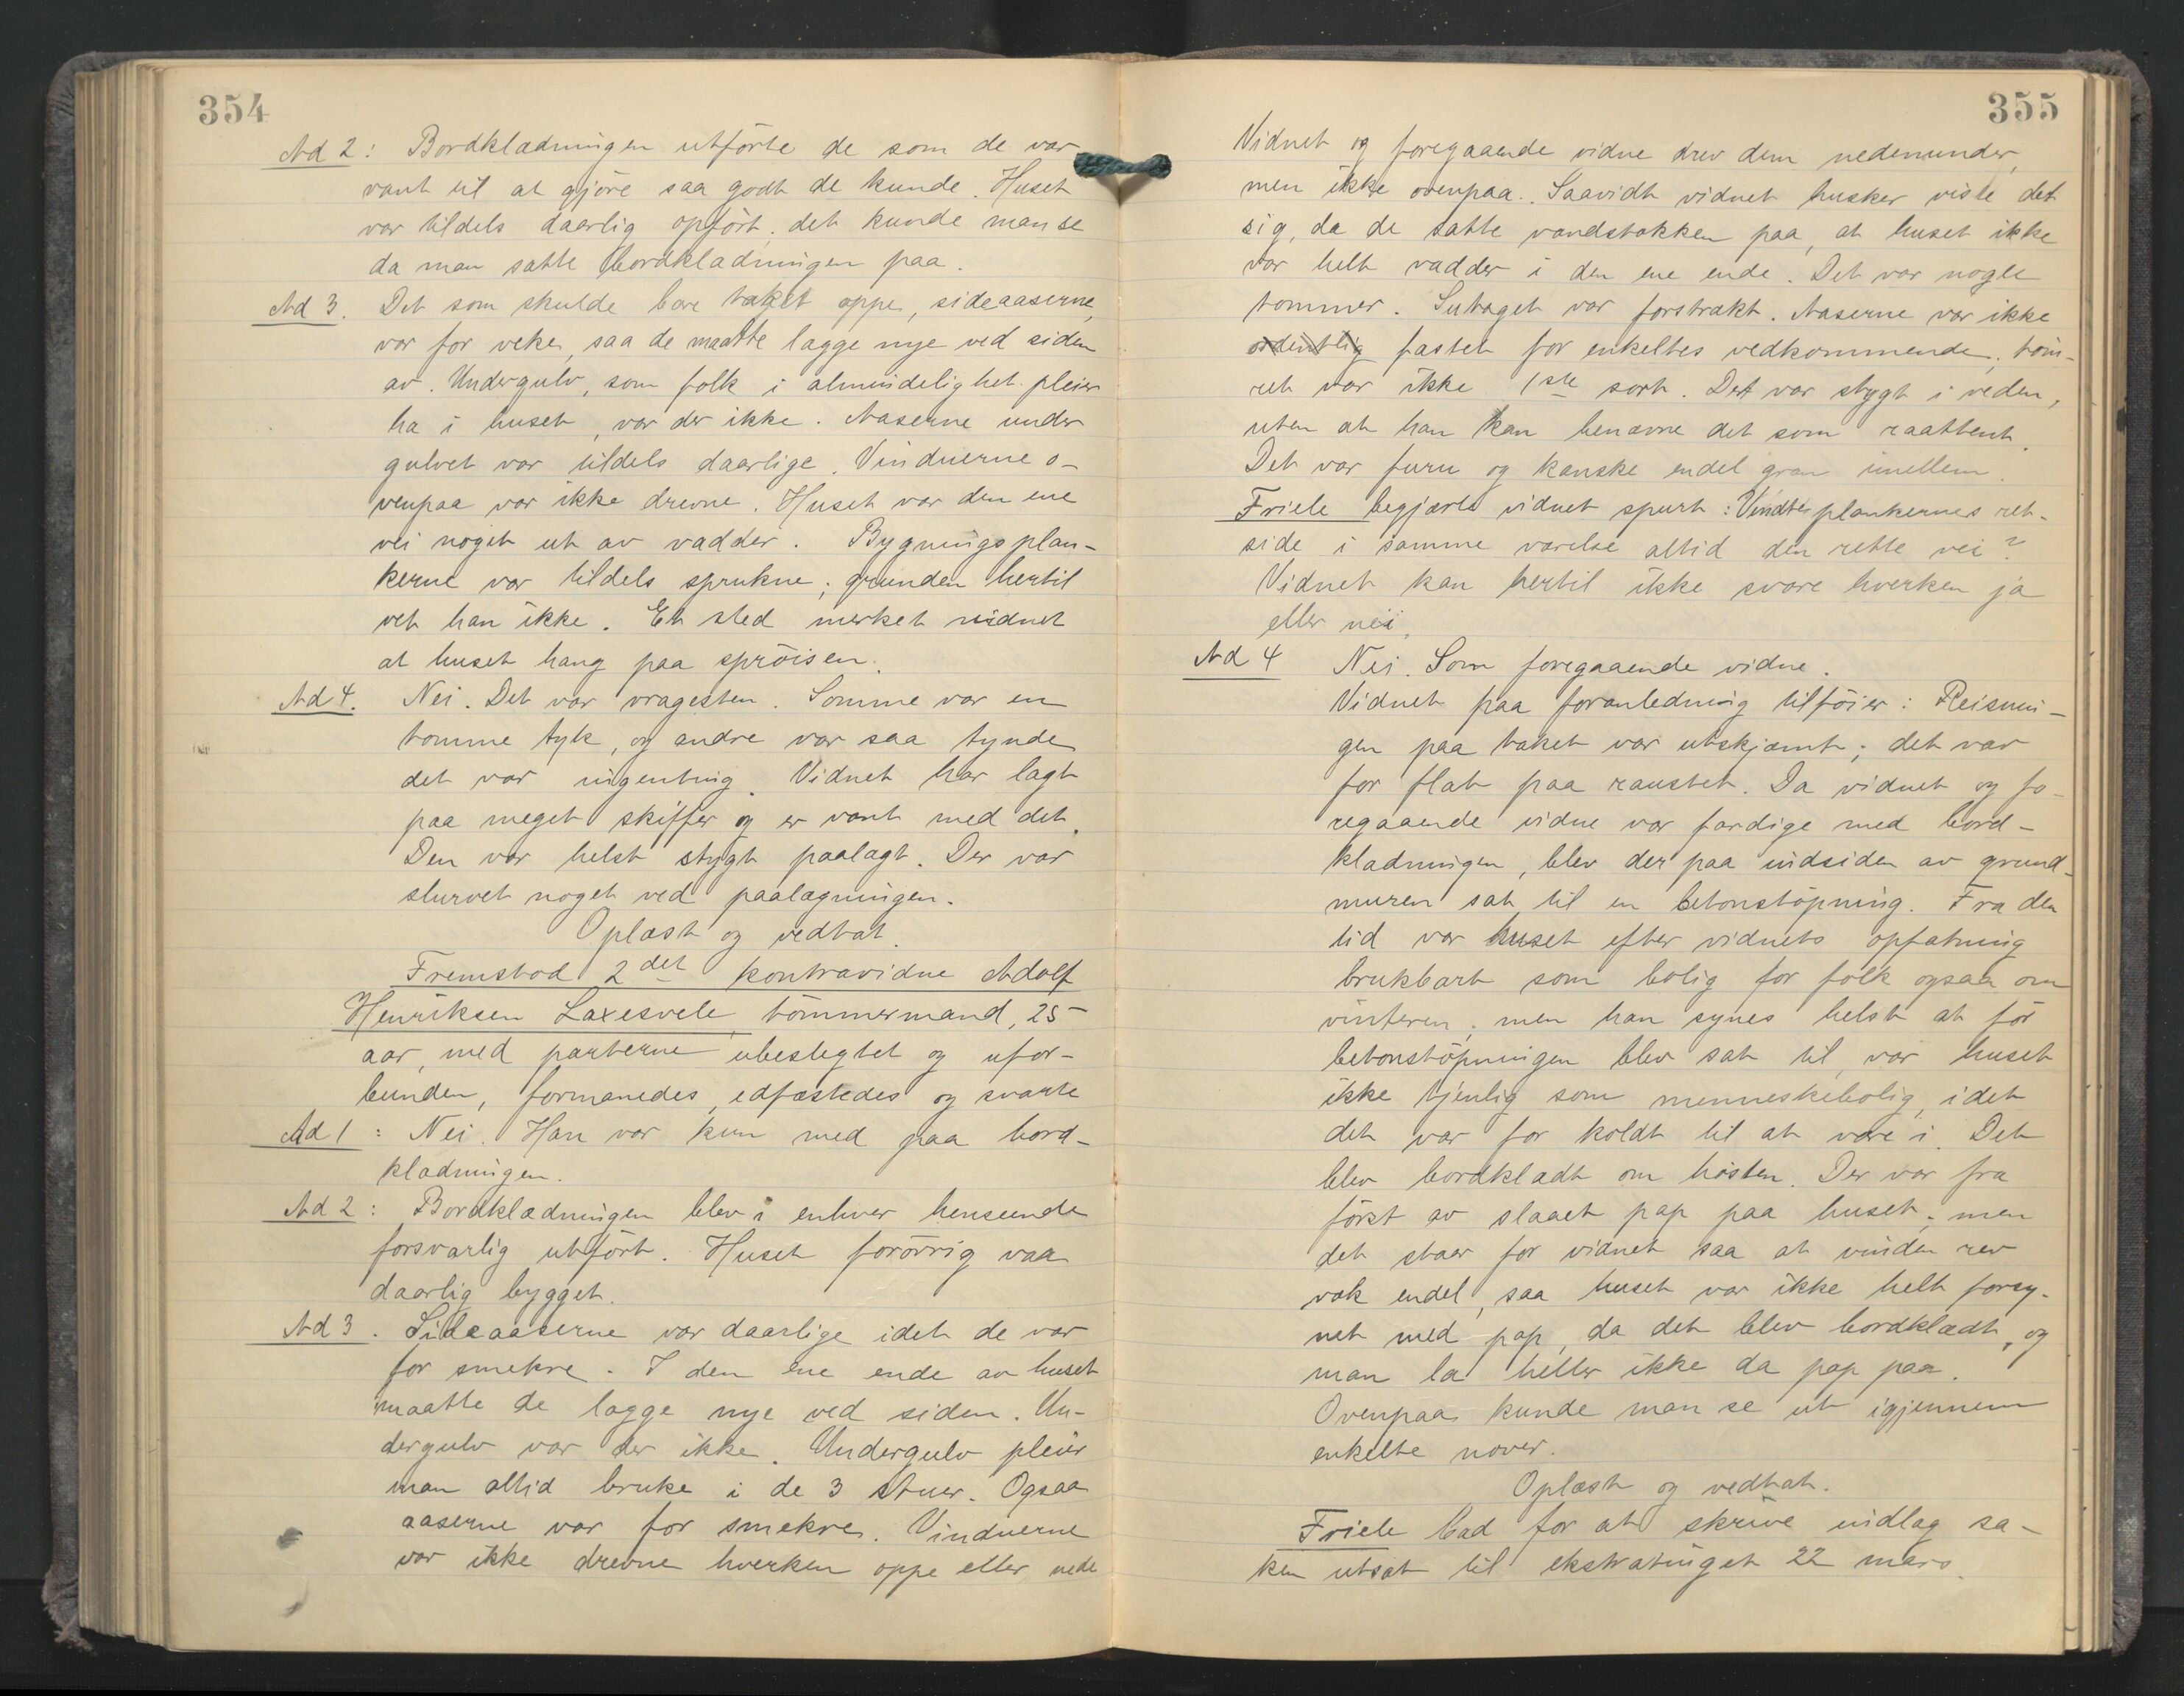 354
Ad 2: Bordklædningen utförte de som de var
vant til at gjöre saa godt de kunde. Huset
var tildels daarlig opfört; det kunde man se
da man satte bordklædningen paa.
Ad 3. Det som skulde bære taket oppe, sideaaserne,
var for veke, saa de maatte lægge nye ved siden
av. Undergulv, som folk i almindelighet pleier
ha i huset, var der ikke. Aaserne under
gulvet var tildels daarlige. Vinduerne o-
venpaa var ikke drevne. Huset var den ene
vei noget ut av vadder. Bygningsplan-
kerne var tildels sprukne; grunden hertil
vet han ikke. Et sted merket vidnet
at huset hang paa spröisen.
Ad 4. Nei. Det var vragesten. Somme var en
tomme tyk, og andre var saa tynde
det var ingenting. Vidnet har lagt
paa meget skiffer og er vant med det.
Den var helst stygt paalagt. Der var
slurvet noget ved paalægningen.
Oplæst og vedtat.
Fremstod 2det kontravidne Adolf
Henriksen Laxesvele, tömmermand, 25
aar, med parterne ubeslegtet og ufor-
bunden, formanedes, edfæstedes og svarte
Ad 1: Nei. Han var kun med paa bord-
klædningen.
Ad 2: Bordklædningen blev i enhver henseende
forsvarlig utfört. Huset forövrig vaa
daarlig bygget.
Ad 3. Sideaaserne var daarlige idet de var
for smekre. I den ene ende av huset
maatte de lægge nye ved siden. Un-
dergulv var der ikke. Undergulv pleier
man altid bruke i de 3 stuer. Ogsaa
aaserne var for smekre. Vinduerne
var ikke drevne hverken oppe eller nede
355
Vidnet og foregaaende vidne drev dem nedenunder,
men ikke ovenpaa. Saavidt vidnet husker viste det
sig, da de satte vandstokken paa, at huset ikke
var helt vadder i den ene ende. Det var nogle
tommer. Sutaget var forstrakt. Aaserne var ikke
ordentlig fastet for enkeltes vedkommende; töm-
ret var ikke 1ste sort. Det var stygt i veden,
uten at han kan benævne det som raattent.
Det var furu og kanske endel gran imellem.
Friele begjærte vidnet spurt: Vendte plankernes ret-
side i samme værelse altid den rette vei?
Vidnet kan hertil ikke svare hverken ja
eller nei.
Ad 4 Nei. Som foregaaende vidne.
Vidnet paa foranledning tilföier: Reisnin-
gen paa taket var utskjæmt; det var
for flat paa raustet. Da vidnet og fo-
regaaende vidne var færdige med bord-
klædningen, blev der paa indsiden av grund-
muren sat til en betonstöpning. Fra den
tid var huset efter vidnets opfatning
brukbart som bolig for folk ogsaa om
vinteren; men han synes helst at för
betonstöpningen blev sat til, var huset
ikke tjenlig som menneskebolig, idet
det var for koldt til at være i. Det
blev bordklædt om hösten. Der var fra
först av slaaet pap paa huset; men
det staar for vidnet saa at vinden rev
væk endel, saa huset var ikke helt forsy-
net med pap, da det blev bordklædt, og
man la heller ikke da pap paa.
Ovenpaa kunde man se ut igjennem
enkelte nover.
Oplæst og vedtat.
Friele bad for at skrive indlæg sa-
ken utsat til ekstratinget 22 mars.